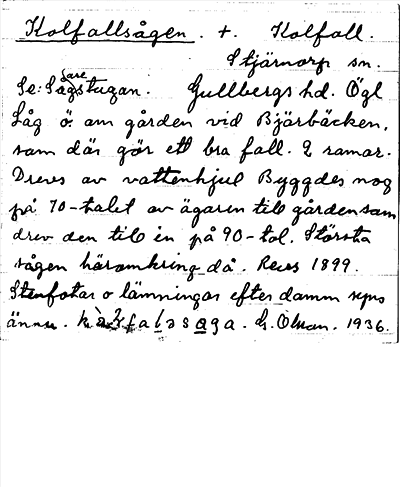 Kolfallsågen. +. Kolfall.
Stjärnorp sn.
Se: Sågarestugan. Gullbergs hd. Ögl
Låg ö. om gården vid Bjärbäcken,
som där gör ett bra fall. 2 ramar.
Drevs av vattenhjul Byggdes nog
på 70-talet av ägaren till gården som
drev den till in på 90-tal. Största
sågen häromkring då. Revs 1899.
Stenfotar o lämningar efter damm syns
ännu. G. Olson. 1936.